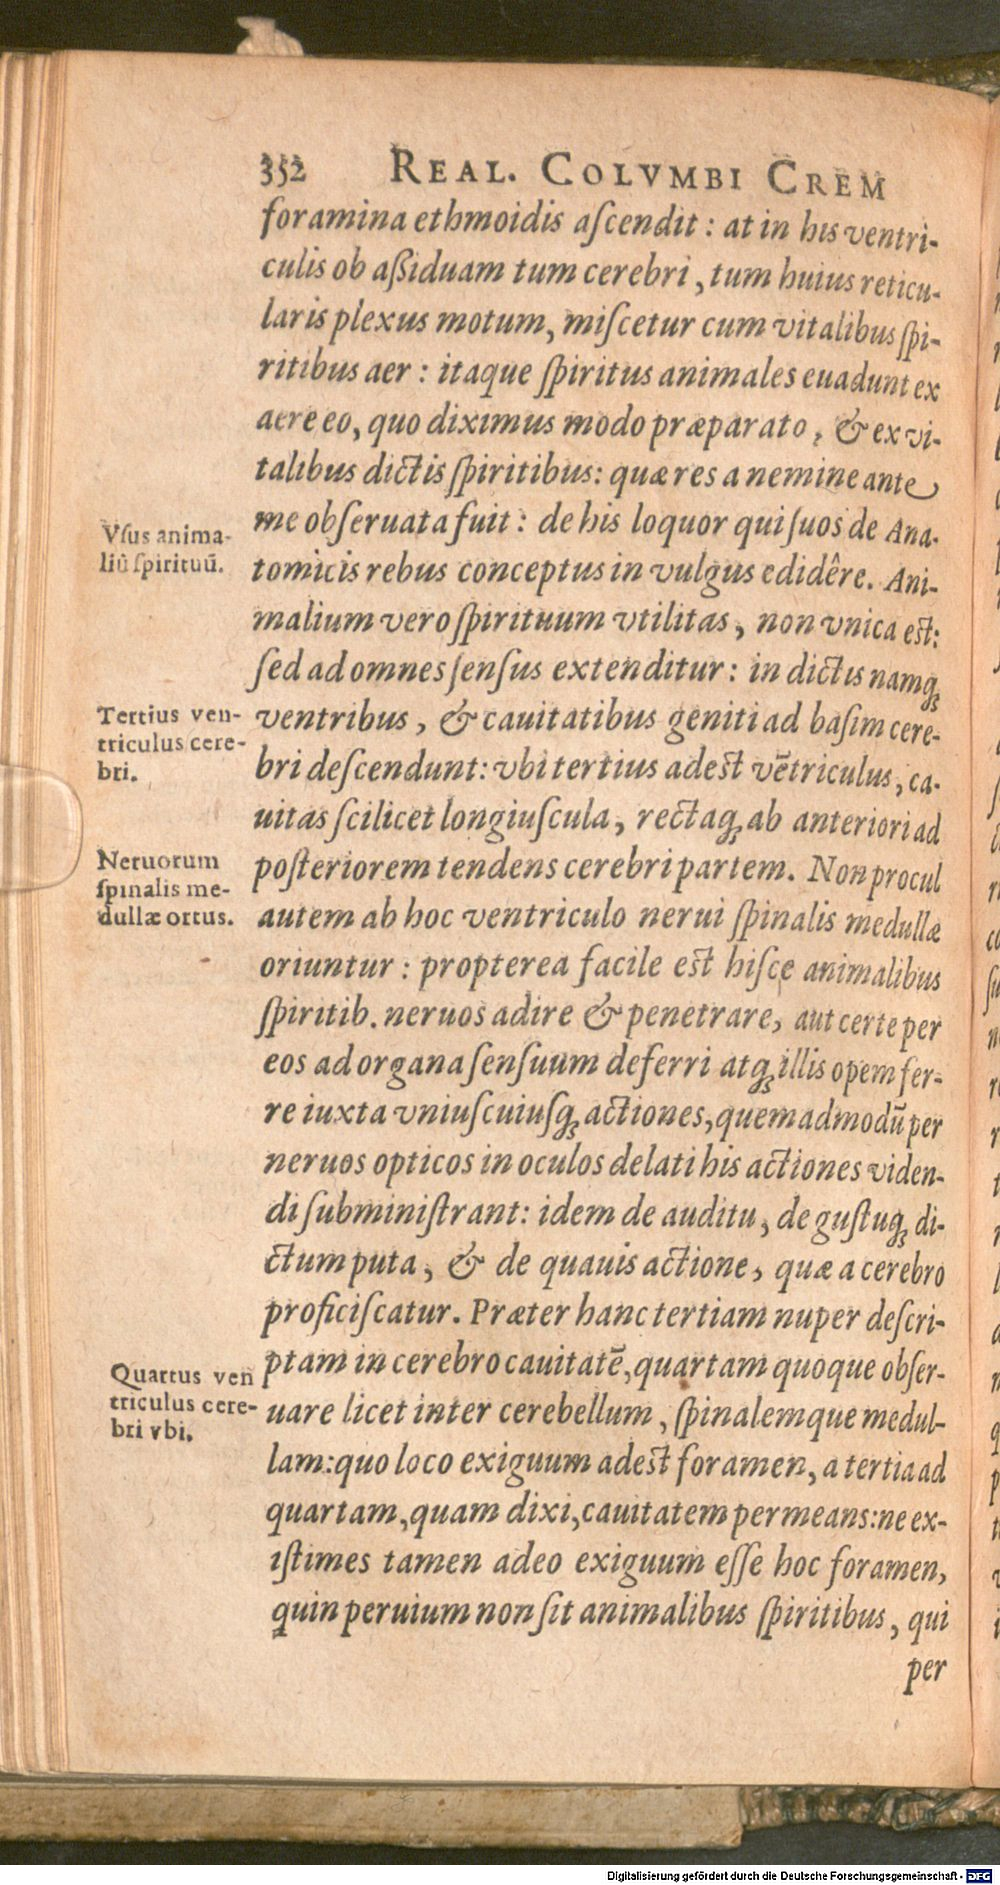 352 REAL. COLVMBI CREM
foramina ethmoidis aſcendit: at in his ventri-
culis ob aßiduam tum cerebri, tum huius reticu-
laris plexus motum, miſcetur cum vitalibus ſpi-
ritibus aer: itaque ſpiritus animales euadunt ex
aere eo, quo diximus modo præparato, & ex vi-
talibus dictis ſpiritibus: quæ res a nemine ante
me obſeruata fuit: de his loquor qui ſuos de Ana-
tomicis rebus conceptus in vulgus edidêre. Ani-
malium vero ſpirituum vtilitas, non vnica est:
ſed ad omnes ſenſus extenditur: in dictis namq;
ventribus, & cauitatibus geniti ad baſim cere-
bri deſcendunt: vbi tertius adest vētriculus, ca-
uitas ſcilicet longiuſcula, rectaq; ab anteriori ad
poſteriorem tendens cerebri partem. Non procul
autem ab hoc ventriculo nerui ſpinalis medullæ
oriuntur: propterea facile est hiſce animalibus
ſpiritib. neruos adire & penetrare, aut certe per
eos ad organa ſenſuum deferri atq; illis opem fer-
re iuxta vniuſcuiuſq; actiones, quemadmodū per
neruos opticos in oculos delati his actiones viden-
di ſubminiſtrant: idem de auditu, de guſtuq; di-
ctum puta, & de quauis actione, quæ a cerebro
proficiſcatur. Præter hanc tertiam nuper deſcri-
ptam in cerebro cauitatē, quartam quoque obſer-
uare licet inter cerebellum, ſpinalemque medul-
lam: quo loco exiguum adest foramen, a tertia ad
quartam, quam dixi, cauitatem permeans: ne ex-
iſtimes tamen adeo exiguum eſſe hoc foramen,
quin peruium non ſit animalibus ſpiritibus, qui
per
Vſus anima-
liū ſpirituū.
Tertius ven-
triculus cere-
bri.
Neruorum
ſpinalis me-
dullæ ortus.
Quartus ven
triculus cere-
bri vbi.
Digitalisierung gefördert durch die Deutsche Forschungsgemeinschaft - DFG